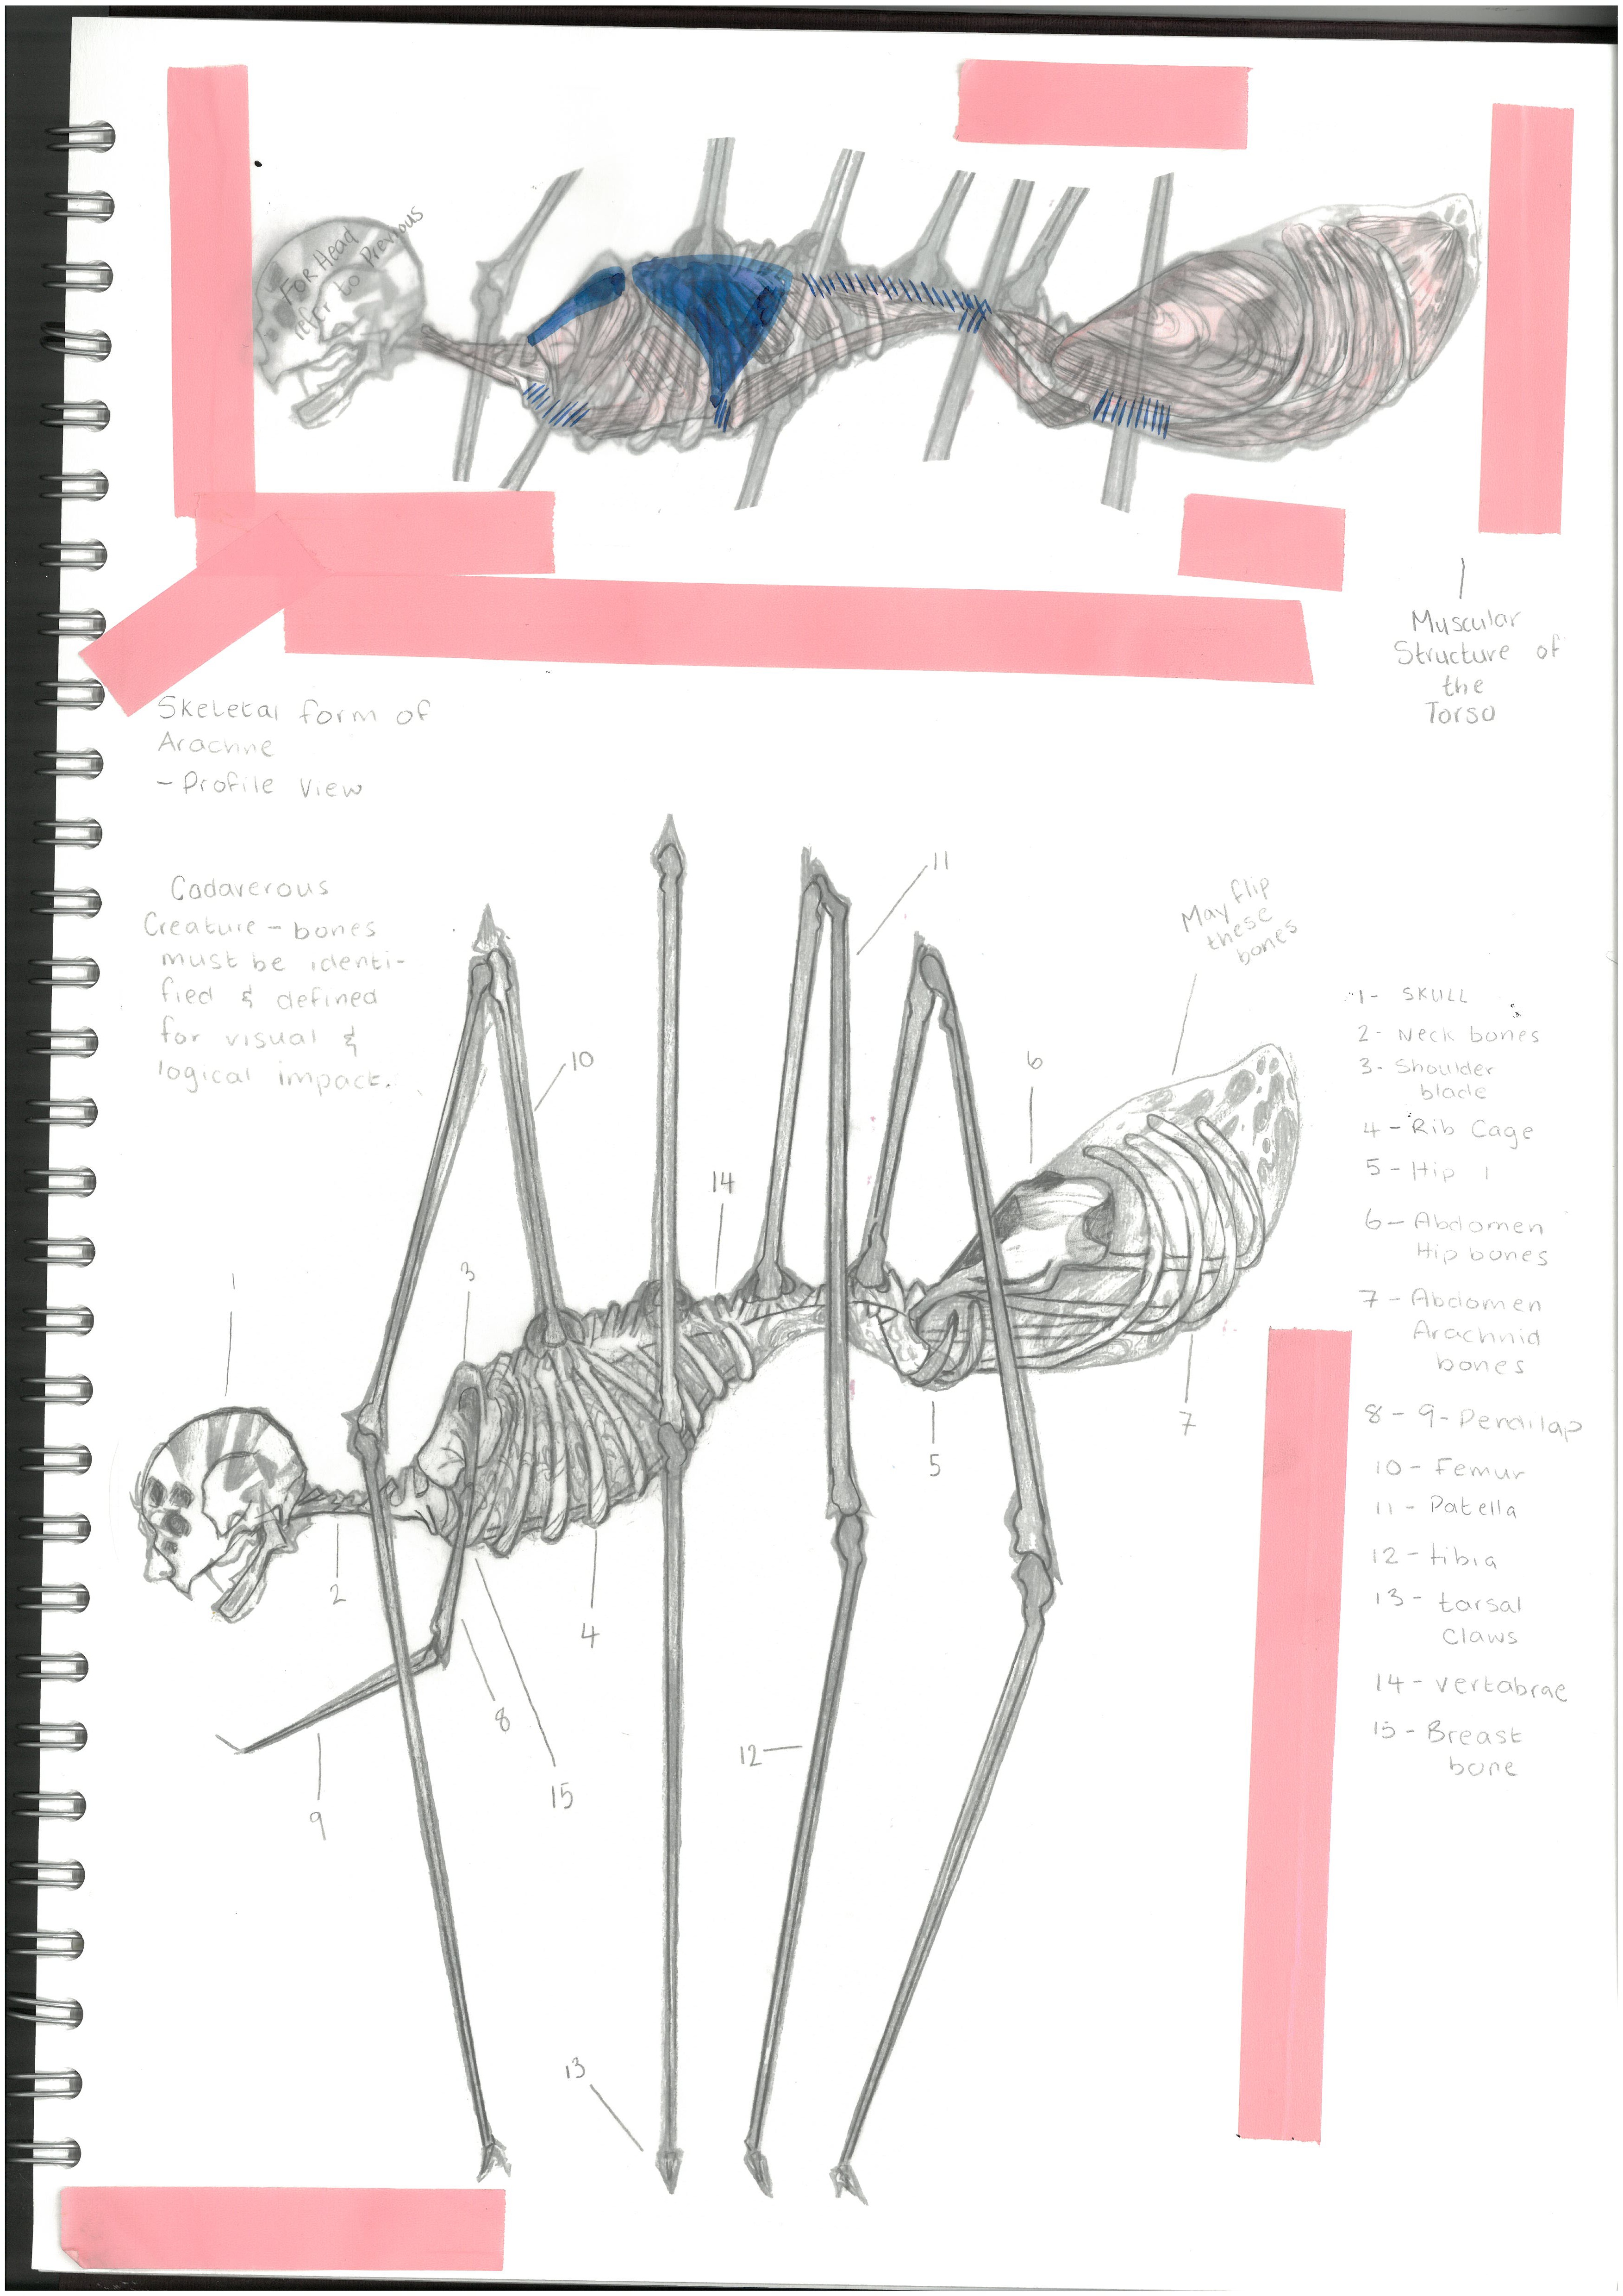 For Head
refer to Previous
Muscular
Structure of
the
Torso
Skeletal form of
Arachne
- Profile View
Cadaverous
Creature - bones
must be identi-
fied & defined
for visual &
logical impact.
May flip
these
bones
11
10
6
14
3
1
5
7
2
4
8
12
15
9
13
1- SKULL
2- Neck bones
3- Shoulder
blade
4- Rib Cage
5- Hip 1
6- Abdomen
Hip bones
7- Abdomen
Arachnid
bones
8-9-
10- Femur
11- Patella
12- tibia
13- tarsal
Claws
14- vertabrae
15- Breast
bone